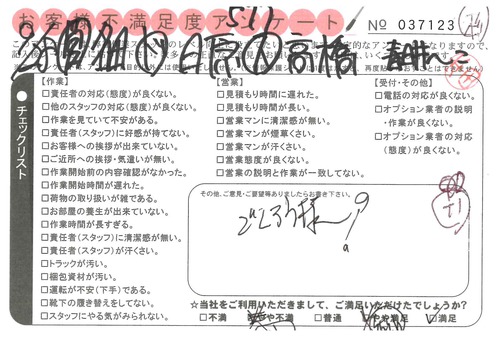 お客様不満足度アンケート
5-11
No 037123
【作業】
□責任者の対応(態度)が良くない。
□他のスタッフの対応(態度)が良くない。
□作業を見ていて不安がある。
□責任者(スタッフ)に好感が持てない。
□お客様への挨拶が出来ていない。
□ご近所への挨拶・気遣いが無い。
□作業開始前の内容確認がなかった。
□作業開始時間が遅れた。
□荷物の取り扱いが雑である。
□お部屋の養生が出来ていない。
□作業時間が長すぎる。
□責任者(スタッフ)に清潔感が無い。
□責任者(スタッフ)が汗くさい。
□トラックが汚い。
□梱包資材が汚い。
□運転が不安(下手)である。
□靴下の履き替えをしてない。
□スタッフにやる気がみられない。
チェックリスト
【営業】
□見積もり時間に遅れた。
□見積もり時間が長い。
□営業マンに清潔感が無い。
□営業マンが煙草くさい。
□営業マンが汗くさい。
□営業態度が良くない。
□営業の説明と作業が一致してない。
【受付・その他】
□電話の対応が良くない。
□オプション業者の説明
・作業が良くない。
□オプション業者の対応
(態度)が良くない。
その他、ご意見・ご要望等ありましたらお書き下さい。
ごくろう様
☆当社をご利用いただきまして、ご満足いただけたでしょうか?
□不満 □やや不満 □普通 □やや満足 □満足